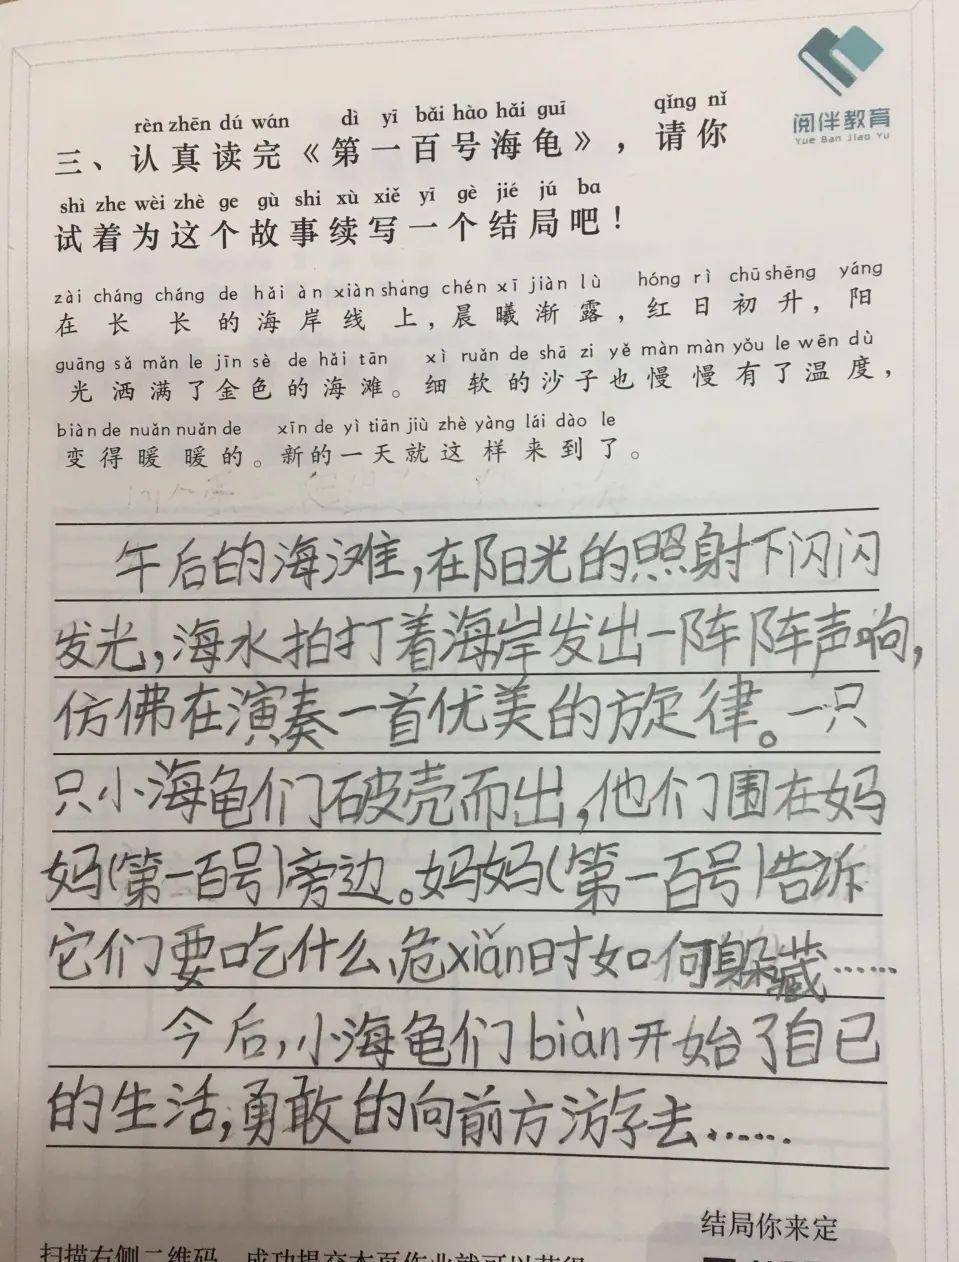 阅伴教育
Yue Ban Jiao Yu
rèn zhēn dú wán dì yī bǎi hào hǎi guī qǐng nǐ
三、认真读完《第一百号海龟》，请你
shì zhe wèi zhè ge gù shi xù xiě yī gè jié jú ba
试着为这个故事续写一个结局吧！
zài cháng cháng de hǎi àn xiàn shàng chén xī jiàn lù hóng rì chū shēng yáng
在长长的海岸线上，晨曦渐露，红日初升，阳
guāng sǎ mǎn le jīn sè de hǎi tān xì ruǎn de shā zi yě màn màn yǒu le wēn dù
光洒满了金色的海滩。细软的沙子也慢慢有了温度，
biàn de nuǎn nuǎn de xīn de yì tiān jiù zhè yàng lái dào le
变得暖暖的。新的一天就这样来到了。
午后的海滩，在阳光的照射下闪闪
发光，海水拍打着海岸发出一阵阵声响，
仿佛在演奏一首优美的旋律。一只
只小海龟们破壳而出，他们围在妈
妈(第一百号)旁边。妈妈(第一百号)告诉
它们要吃什么、危xiǎn时如何躲藏……
今后，小海龟们biàn开始了自己
的生活，勇敢的向前方游去……
结局你来定
扫描右侧二维码，成功提交本页作业就可以获得